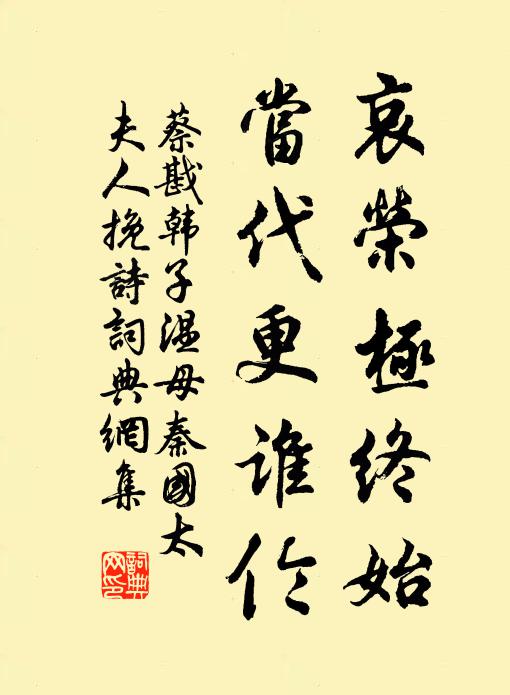 哀榮極終始
當代更誰伦
蔡戡韩子温母秦國太
夫人挽詩詞典網集
詞典网印